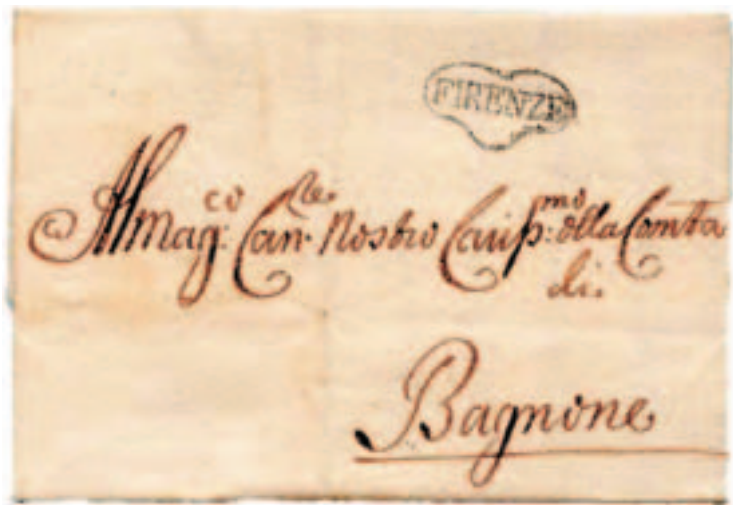 FIRENZE
Al Mag:co Can:re Nostro Cariss:mo della Comtà
di
Bagnone